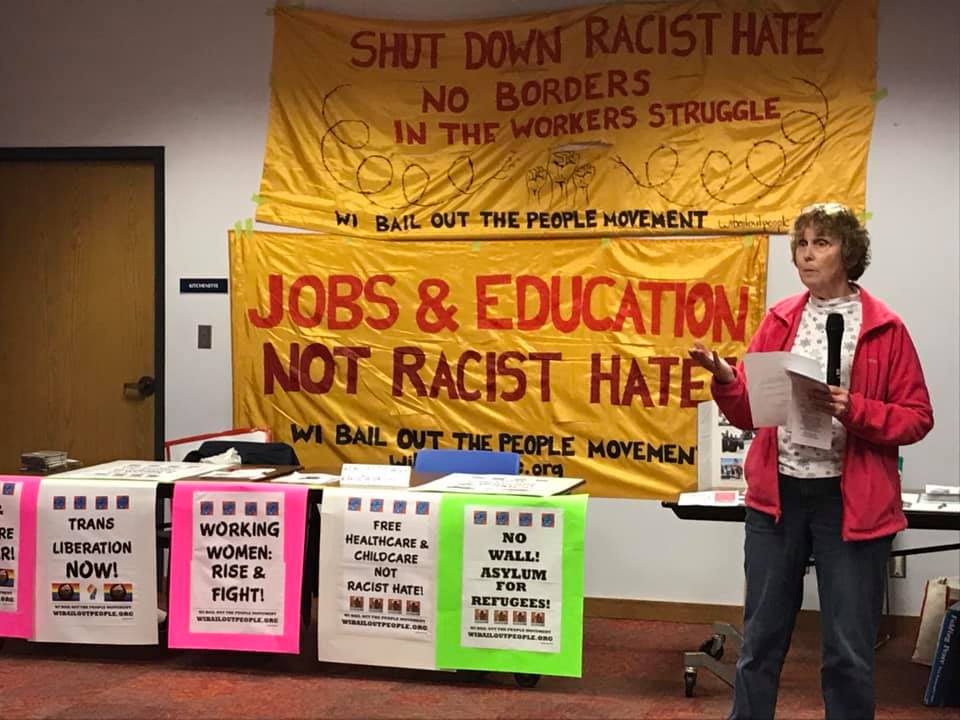 SHUT DOWN RACIST HATE
NO BORDERS
IN THE WORKERS STRUGGLE
WI BAIL OUT THE PEOPLE MOVEMENT
wibailoutpeople
KITCHENETTE
JOBS & EDUCATION
NOT RACIST HATE
WI BAIL OUT THE PEOPLE MOVEMEN
.org
TRANS
LIBERATION
NOW!
WI BAIL OUT THE PEOPLE MOVEMENT
WIBAILOUTPEOPLE.ORG
WORKING
WOMEN:
RISE &
FIGHT!
WI BAIL OUT THE PEOPLE MOVEMENT
WIBAILOUTPEOPLE.ORG
FREE
HEALTHCARE &
CHILDCARE
NOT
RACIST HATE!
WI BAIL OUT THE PEOPLE MOVEMENT
WIBAILOUTPEOPLE.ORG
NO
WALL!
ASYLUM
FOR
REFUGEES!
WI BAIL OUT THE PEOPLE MOVEMENT
WIBAILOUTPEOPLE.ORG